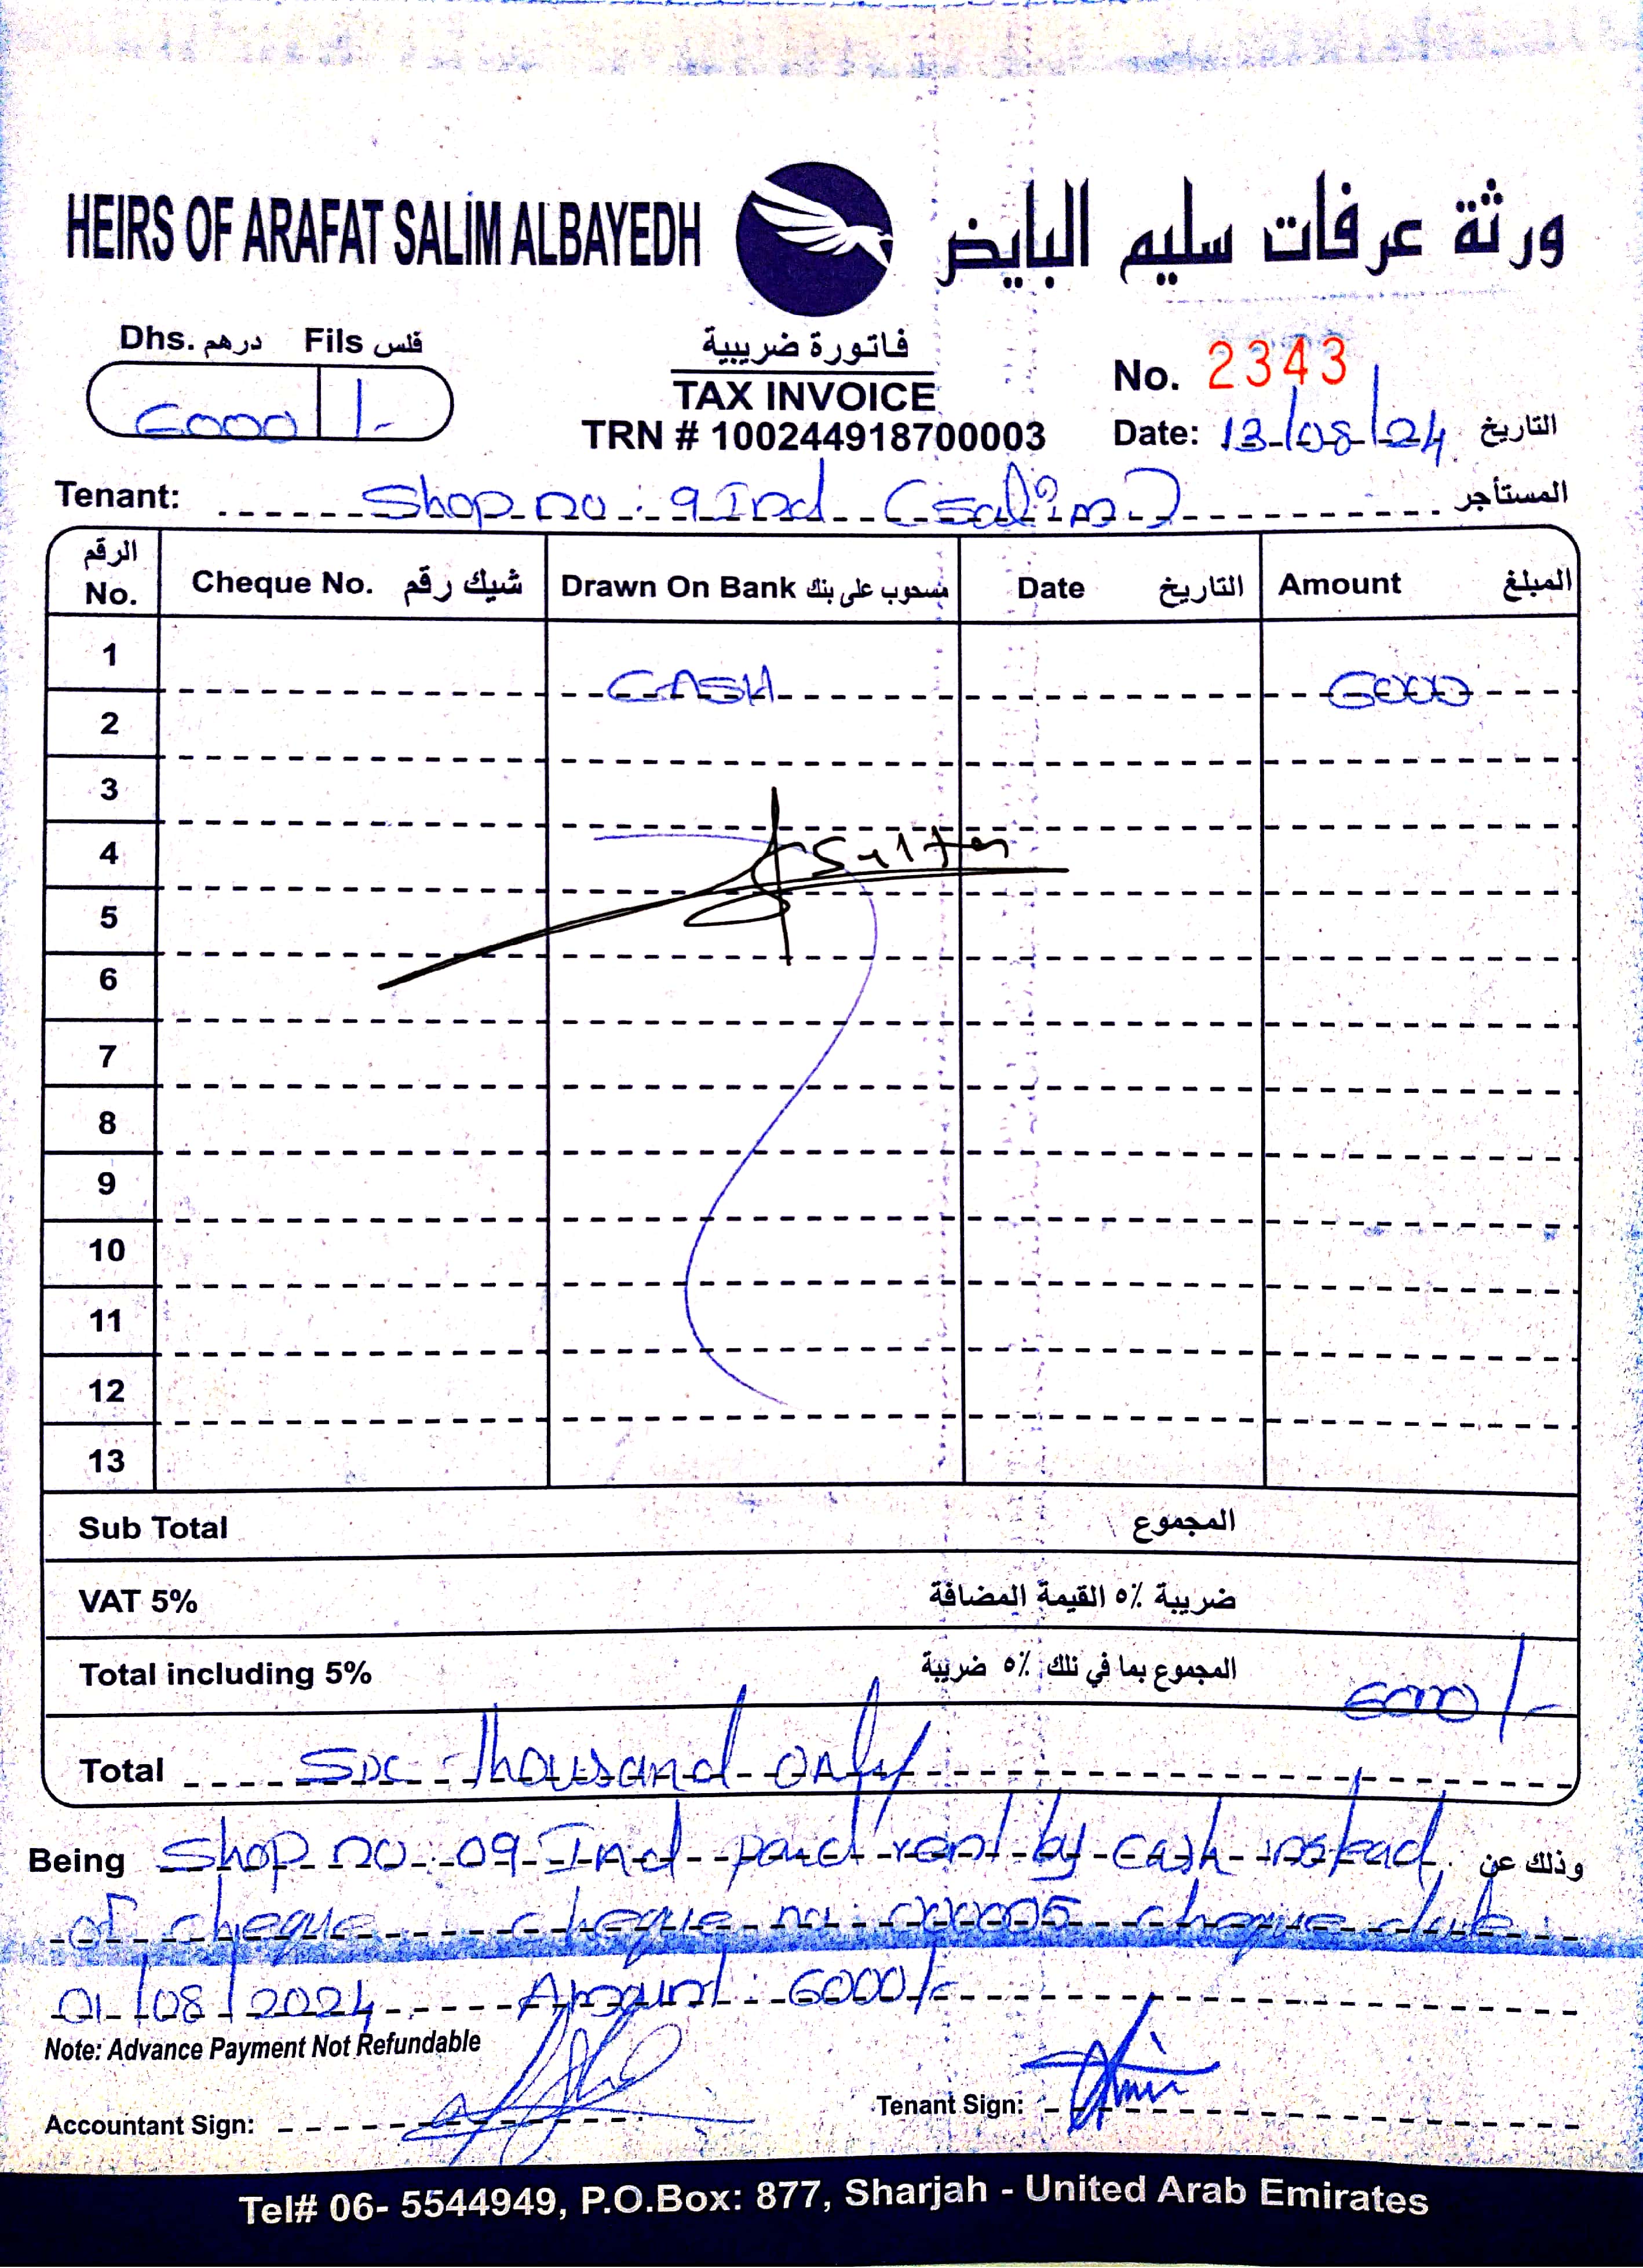 HEIRS OF ARAFAT SALIM ALBAYEDH ورثة عرفات سليم البايض
Dhs. درهم Fils فلس
6000 /-
فاتورة ضريبية
TAX INVOICE
TRN # 100244918700003
No. 2343
Date: 13/08/24 التاريخ
Tenant: Shop no: 9 Ind (Salim) المستأجر
الرقم No. Cheque No. شيك رقم Drawn On Bank مسحوب على بنك Date التاريخ Amount المبلغ
1 CASH 6000
2
3
4 Sultan
5
6
7
8
9
10
11
12
13
Sub Total المجموع
VAT 5% ضريبة ٥٪ القيمة المضافة
Total including 5% المجموع بما في ذلك ٥٪ ضريبة 6000/-
Total Six Thousand only
Being Shop no: 09 Ind paid rent by cash instead وذلك عن
of cheque cheque no: 000005 cheque date
01/08/2024 Amount: 6000/-
Note: Advance Payment Not Refundable
Accountant Sign: Tenant Sign:
Tel# 06- 5544949, P.O.Box: 877, Sharjah - United Arab Emirates